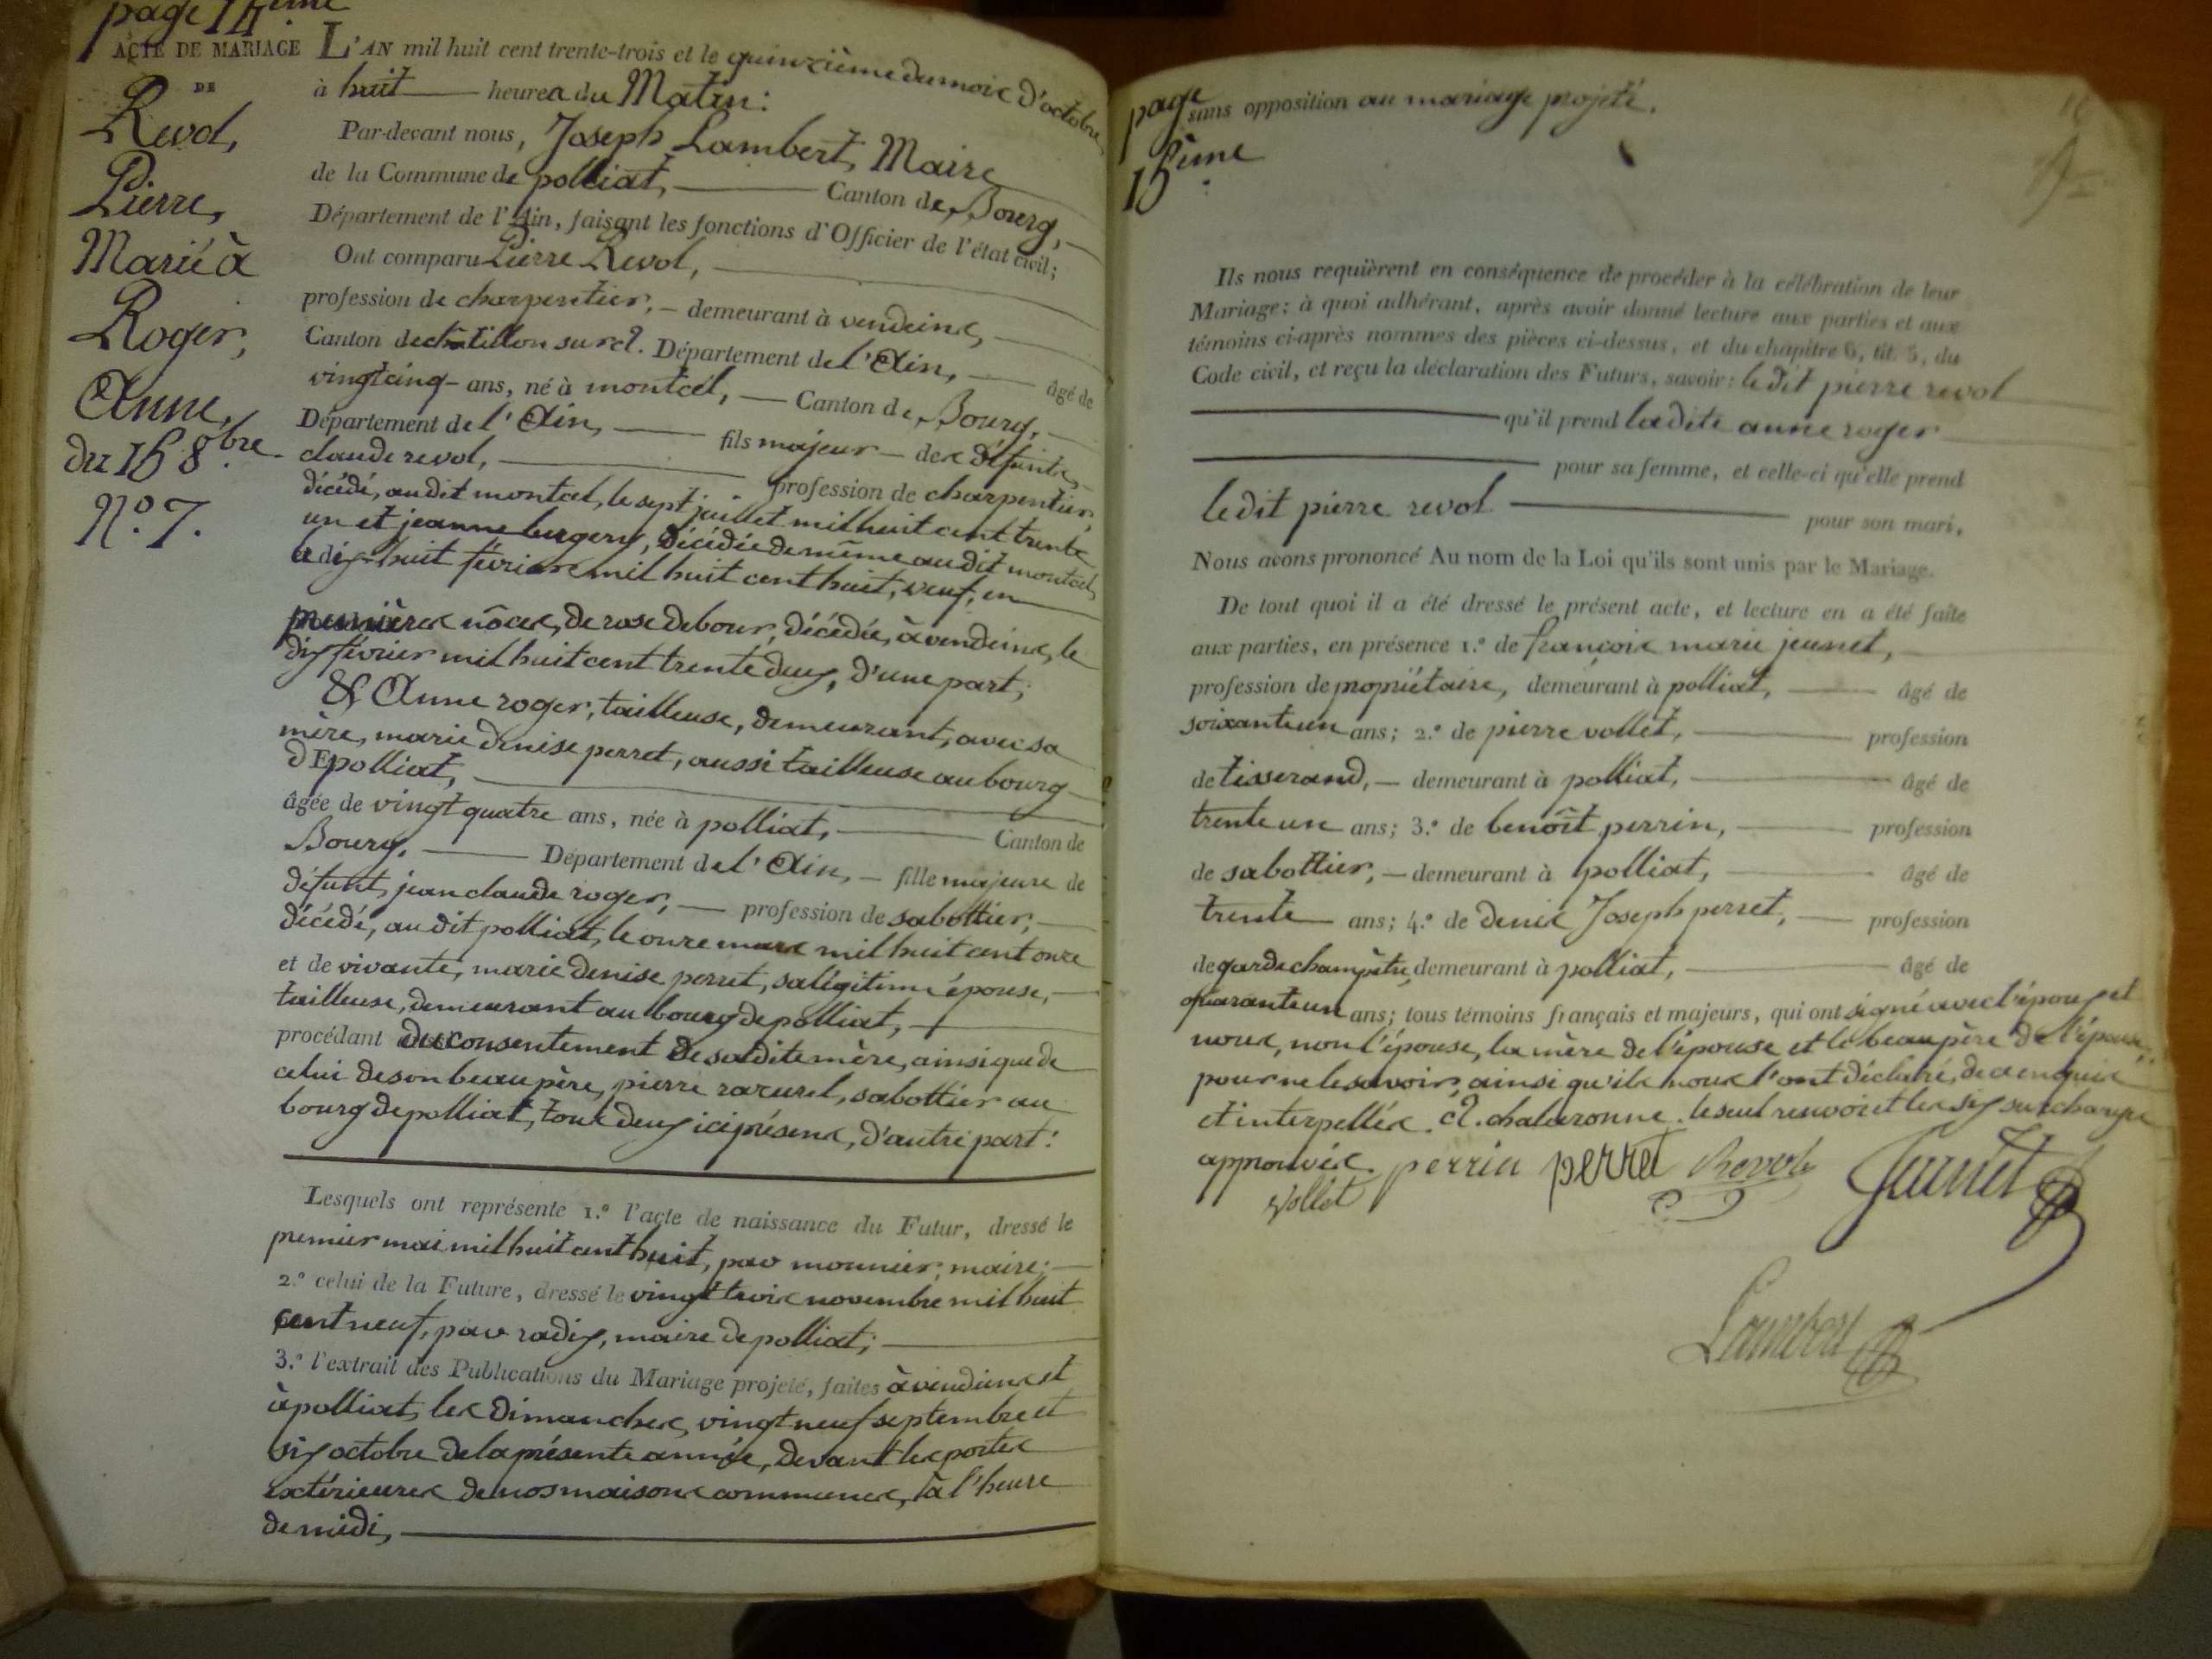 page 14ème
ACTE DE MARIAGE
DE
Revol,
Pierre,
Marié à
Roger,
Anne,
du 15 8.bre
N.o 7.
L'AN mil huit cent trente-trois et le quinzième du mois d'octobre
à huit heures du Matin:
Par-devant nous, Joseph Lambert, Maire
de la Commune de polliat, Canton de Bourg,
Département de l'Ain, faisant les fonctions d'Officier de l'état civil;
Ont comparu Pierre Revol,
profession de charpentier, demeurant à vendeins,
Canton de châtillon sur cl. Département de l'Ain, âgé de
vingt cinq ans, né à montcel, Canton de Bourg,
Département de l'Ain, fils majeur des défunts
claude revol, profession de charpentier,
décédé, au dit montcel, le sept juillet mil huit cent trente
un et jeanne, décédée de même au dit montcel,
le dix-huit février mil huit cent huit, veuf, en
premières nôces, de rose debour, décédée, à vendeins, le
dix février mil huit cent trente deux, d'une part;
& Anne roger, tailleuse, demeurant, avec sa
mère, marie denise perret, aussi tailleuse au bourg
DE polliat,
âgée de vingt quatre ans, née à polliat, Canton de
Bourg, Département de l'Ain, fille majeure de
défunt, jean claude roger, profession de sabottier,
décédé, au dit polliat, le onze mars mil huit cent onze
et de vivante, marie denise perret, sa légitime épouse,
tailleuse, demeurant au bourg de polliat,
procédant du consentement de sa dite mère, ainsi que de
celui de son beau père, pierre razurel, sabottier au
bourg de polliat, tous deux ici présens, d'autre part:
Lesquels ont représente 1.o l'acte de naissance du Futur, dressé le
premier mai mil huit cent huit, par monnier, maire;
2.o celui de la Future, dressé le vingt trois novembre mil huit
cent neuf, par radix, maire de polliat;
3.o l'extrait des Publications du Mariage projeté, faites à vendeins et
à polliat, les dimanches, vingt neuf septembre et
six octobre de la présente année, devant les portes
extérieures de nos maisons communes, à l'heure
de midi,
page
15ème
sans opposition au mariage projeté.
Ils nous requièrent en conséquence de procéder à la célébration de leur
Mariage; à quoi adhérant, après avoir donné lecture aux parties et aux
témoins ci-après nommes des pièces ci-dessus, et du chapitre 6, tit. 5, du
Code civil, et reçu la déclaration des Futurs, savoir: le dit pierre revol
qu'il prend la dite anne roger
pour sa femme, et celle-ci qu'elle prend
le dit pierre revol
pour son mari,
Nous avons prononcé Au nom de la Loi qu'ils sont unis par le Mariage.
De tout quoi il a été dressé le présent acte, et lecture en a été faite
aux parties, en présence 1.o de françois marie jeunet,
profession de propriétaire, demeurant à polliat, âgé de
soixante un ans; 2.o de pierre vollet, profession
de tisserand, demeurant à polliat, âgé de
trente un ans; 3.o de benoît perrin, profession
de sabottier, demeurant à polliat, âgé de
trente ans; 4.o de denis Joseph perret, profession
de garde champêtre, demeurant à polliat, âgé de
quarante un ans; tous témoins français et majeurs, qui ont signé avec l'époux et
nous, non l'épouse, la mère de l'épouse et le beau père de l'épouse,
pour ne le savoir, ainsi qu'ils nous l'ont déclaré, de ce enquis
et interpellés. cl. chalaronne. le seul renvoi et les six surcharges
approuvés. perrin perret Revol Jeunet
Vollet
Lambert